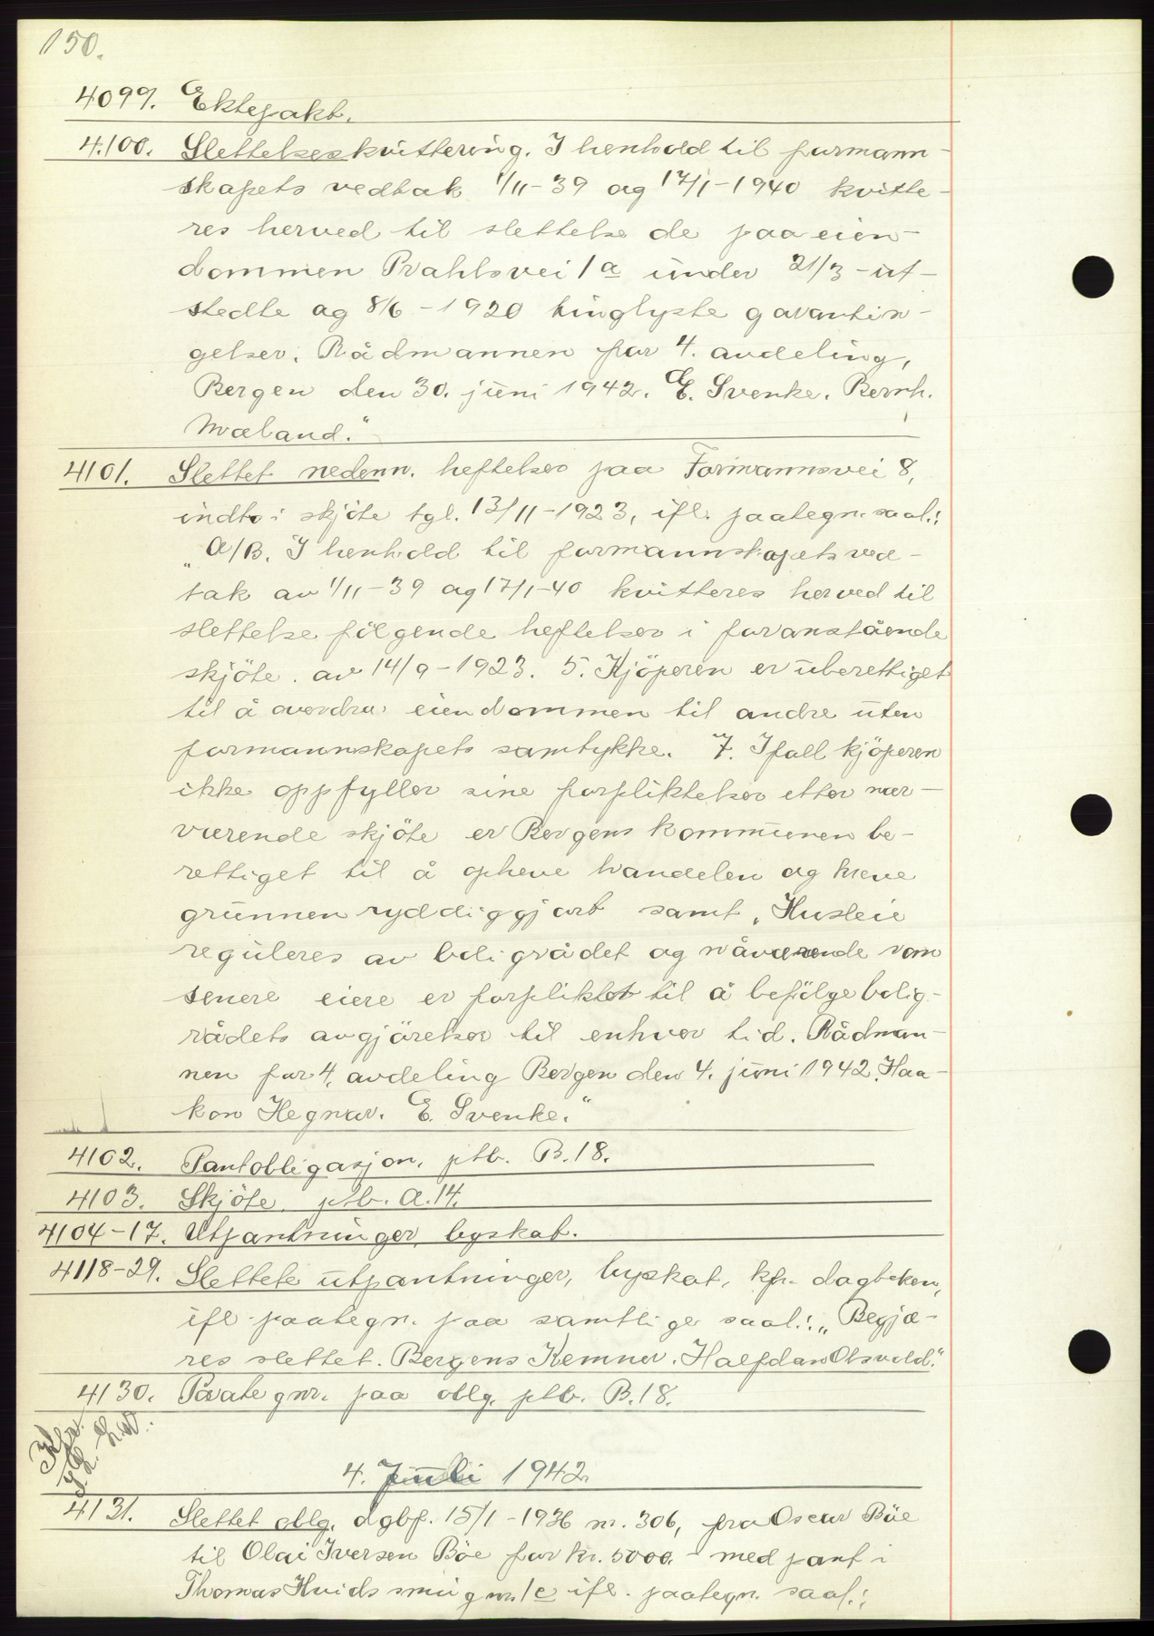 150.
4099. Ektepakt.
4100. Slettelseskvittering. I henhold til formann-
skapets vedtak 1/11-39 og 17/1-1940 kvitte-
res herved til slettelse de paa eien-
dommen Prahlsvei 1a under 21/3 - ut-
stedte og 8/6-1920 tinglyste garantin-
gelser. Rådmannen for 4. avdeling,
Bergen den 30. juni 1942. E. Svenke. Bernh.
Mæland."
4101. Slettet nedenn. heftelser paa Formannsvei 8,
indt. i skjöte tgl. 13/11-1923, ifl. paategn. saal.:
„A/B. I henhold til formannskapets ved-
tak av 1/11-39 og 17/1-40 kvitteres herved til
slettelse fölgende heftelser i foranstående
skjöte. av 14/9-1923. 5. Kjöperen er uberettiget
til å overdra eiendommen til andre uten
formannskapets samtykke. 7. Ifall kjöperen
ikke oppfyller sine forpliktelser etter nær-
værende skjöte er Bergens kommunen be-
rettiget til å opheve handelen og kreve
grunnen ryddiggjort samt „Husleie
reguleres av boligrådet og nåværende som
senere eiere er forpliktet til å befölge bolig-
rådets avgjörelser til enhver tid. Rådman-
nen for 4. avdeling Bergen den 4. juni 1942. Haa-
kon Hegnar. E. Svenke."
4102. Pantobligasjon, ptb. B.18.
4103. Skjöte, ptb. A.14.
4104-17. Utpantninger, byskat.
4118-29. Slettete utpantninger, byskat, kfr. dagboken,
ifl. paategn. paa samtlige saal.: „Begjæ-
res slettet. Bergens Kemner. Halfdan Olsvold."
4130. Påategnr. paa oblg. ptb. B.18.
Kfr.
4. Juli 1942
4131. Slettet oblg. dgbf. 15/1-1936 nr. 306, fra Oscar Böe
til Olai Iversen Böe for kr. 5000.- med pant i
Thomas Hvids smug nr. 1c ifl. paategn. saal.: